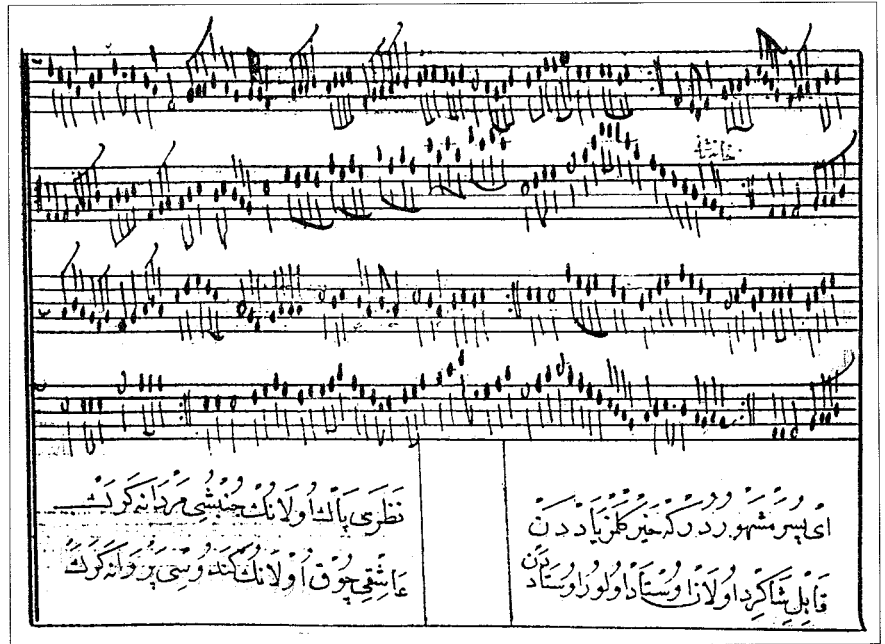 اى پُسر مَشهُوردُر كه خَيْر كلمز ياددن
قابِلِ شاكِرد اُولان اُوسْتاد اولور اوستاددن
نَظَرى پاك اُولانُك جُنْبُشى مَرْدانَه كَرَك
عاشِقى چُوق اُولانُك كَنْدُوسى پَرْوانَه كَرَك